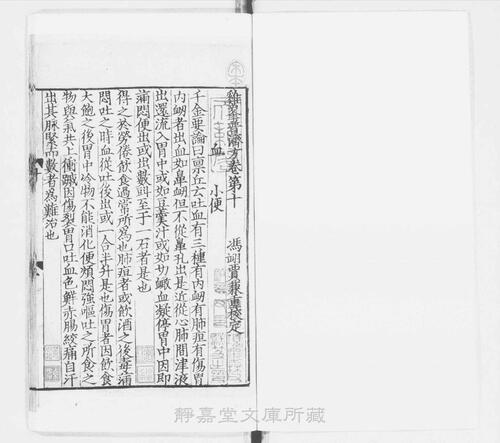 雞峯普濟方卷第十
馮翊賈兼重校定
血　小便
千金要論曰廩丘云吐血有三種有内衂有肺疽有傷胃
内衂者出血如鼻衂但不從鼻孔出是近從心肺間津液
出還流入胃中或如豆羹汁或如切䘓血凝停胃中因即
滿悶便出或出數㪷至于一石者是也
得之於勞倦飲食過常所爲也肺疽者或飲酒之後毒滿
悶吐之時血從吐後出或一合半升是也傷胃者因飲食
大飽之後胃中冷物不能消化便煩悶強嘔吐之所食之
物與氣共上衝蹴因傷裂胃口吐血色鮮赤腸絞痛自汗
出其脉緊而數者爲難治也
靜嘉堂文庫所藏